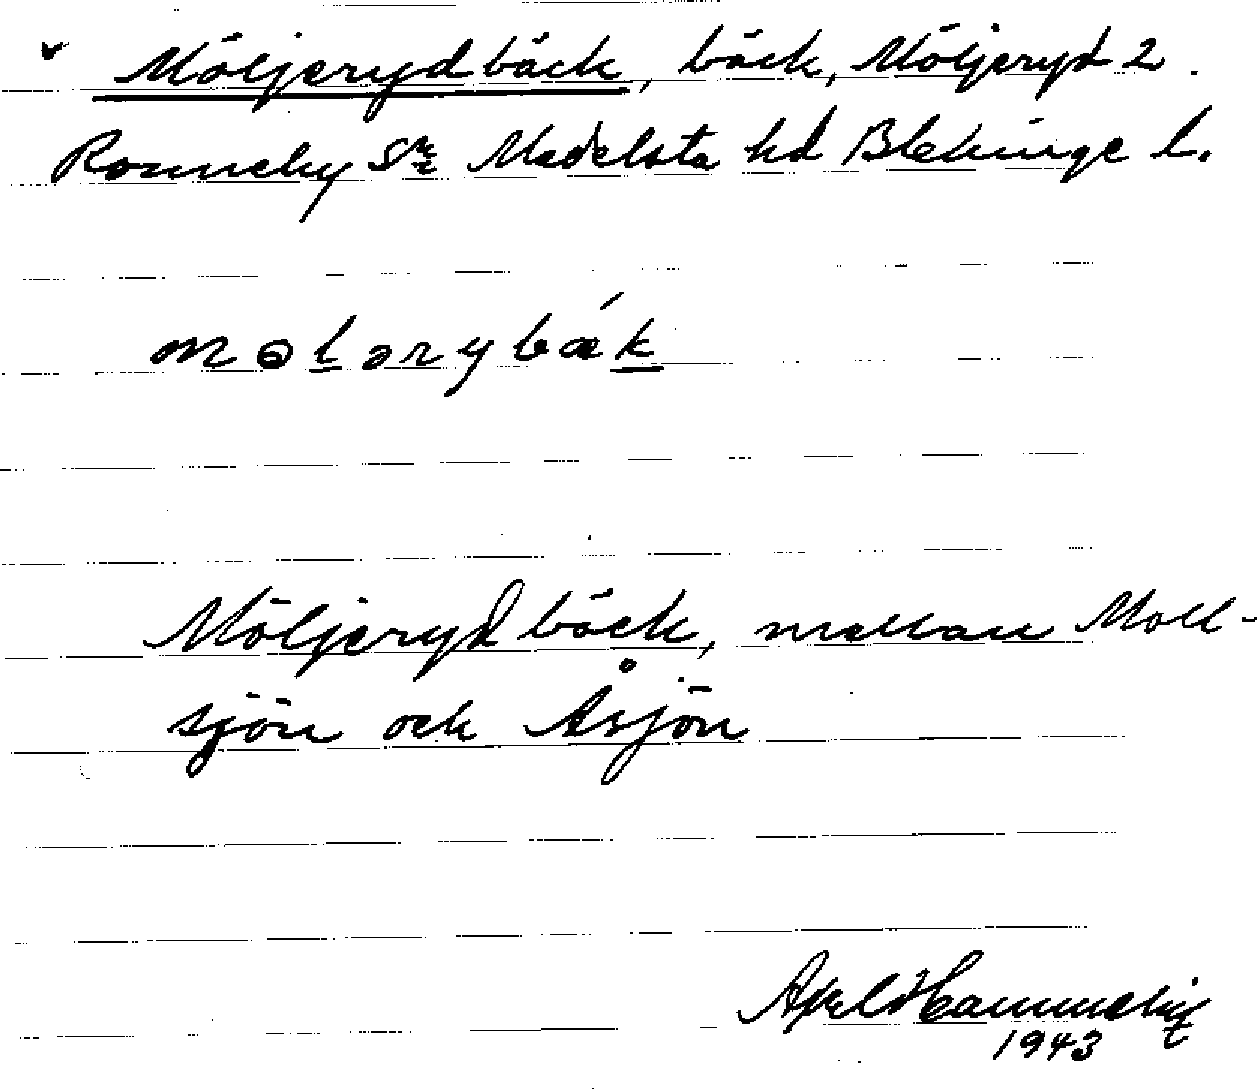 Möljerydbäck, bäck, Möljeryd 2.
Ronneby sn Medelsta hd Blekinge l.
mɵlərybǽk
Möljerydbäck, mellan Moll-
sjön och Åsjön
Axel Hammeby
1943